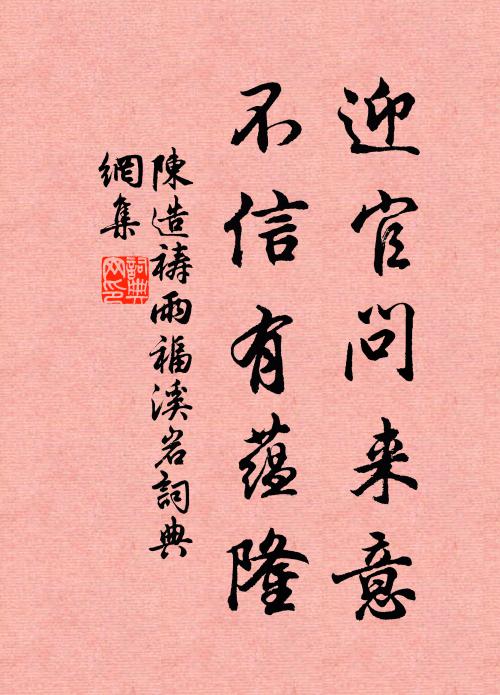 迎官问来意
不信有蕴隆
陳造禱雨福溪岩詞典
網集
詞典網印